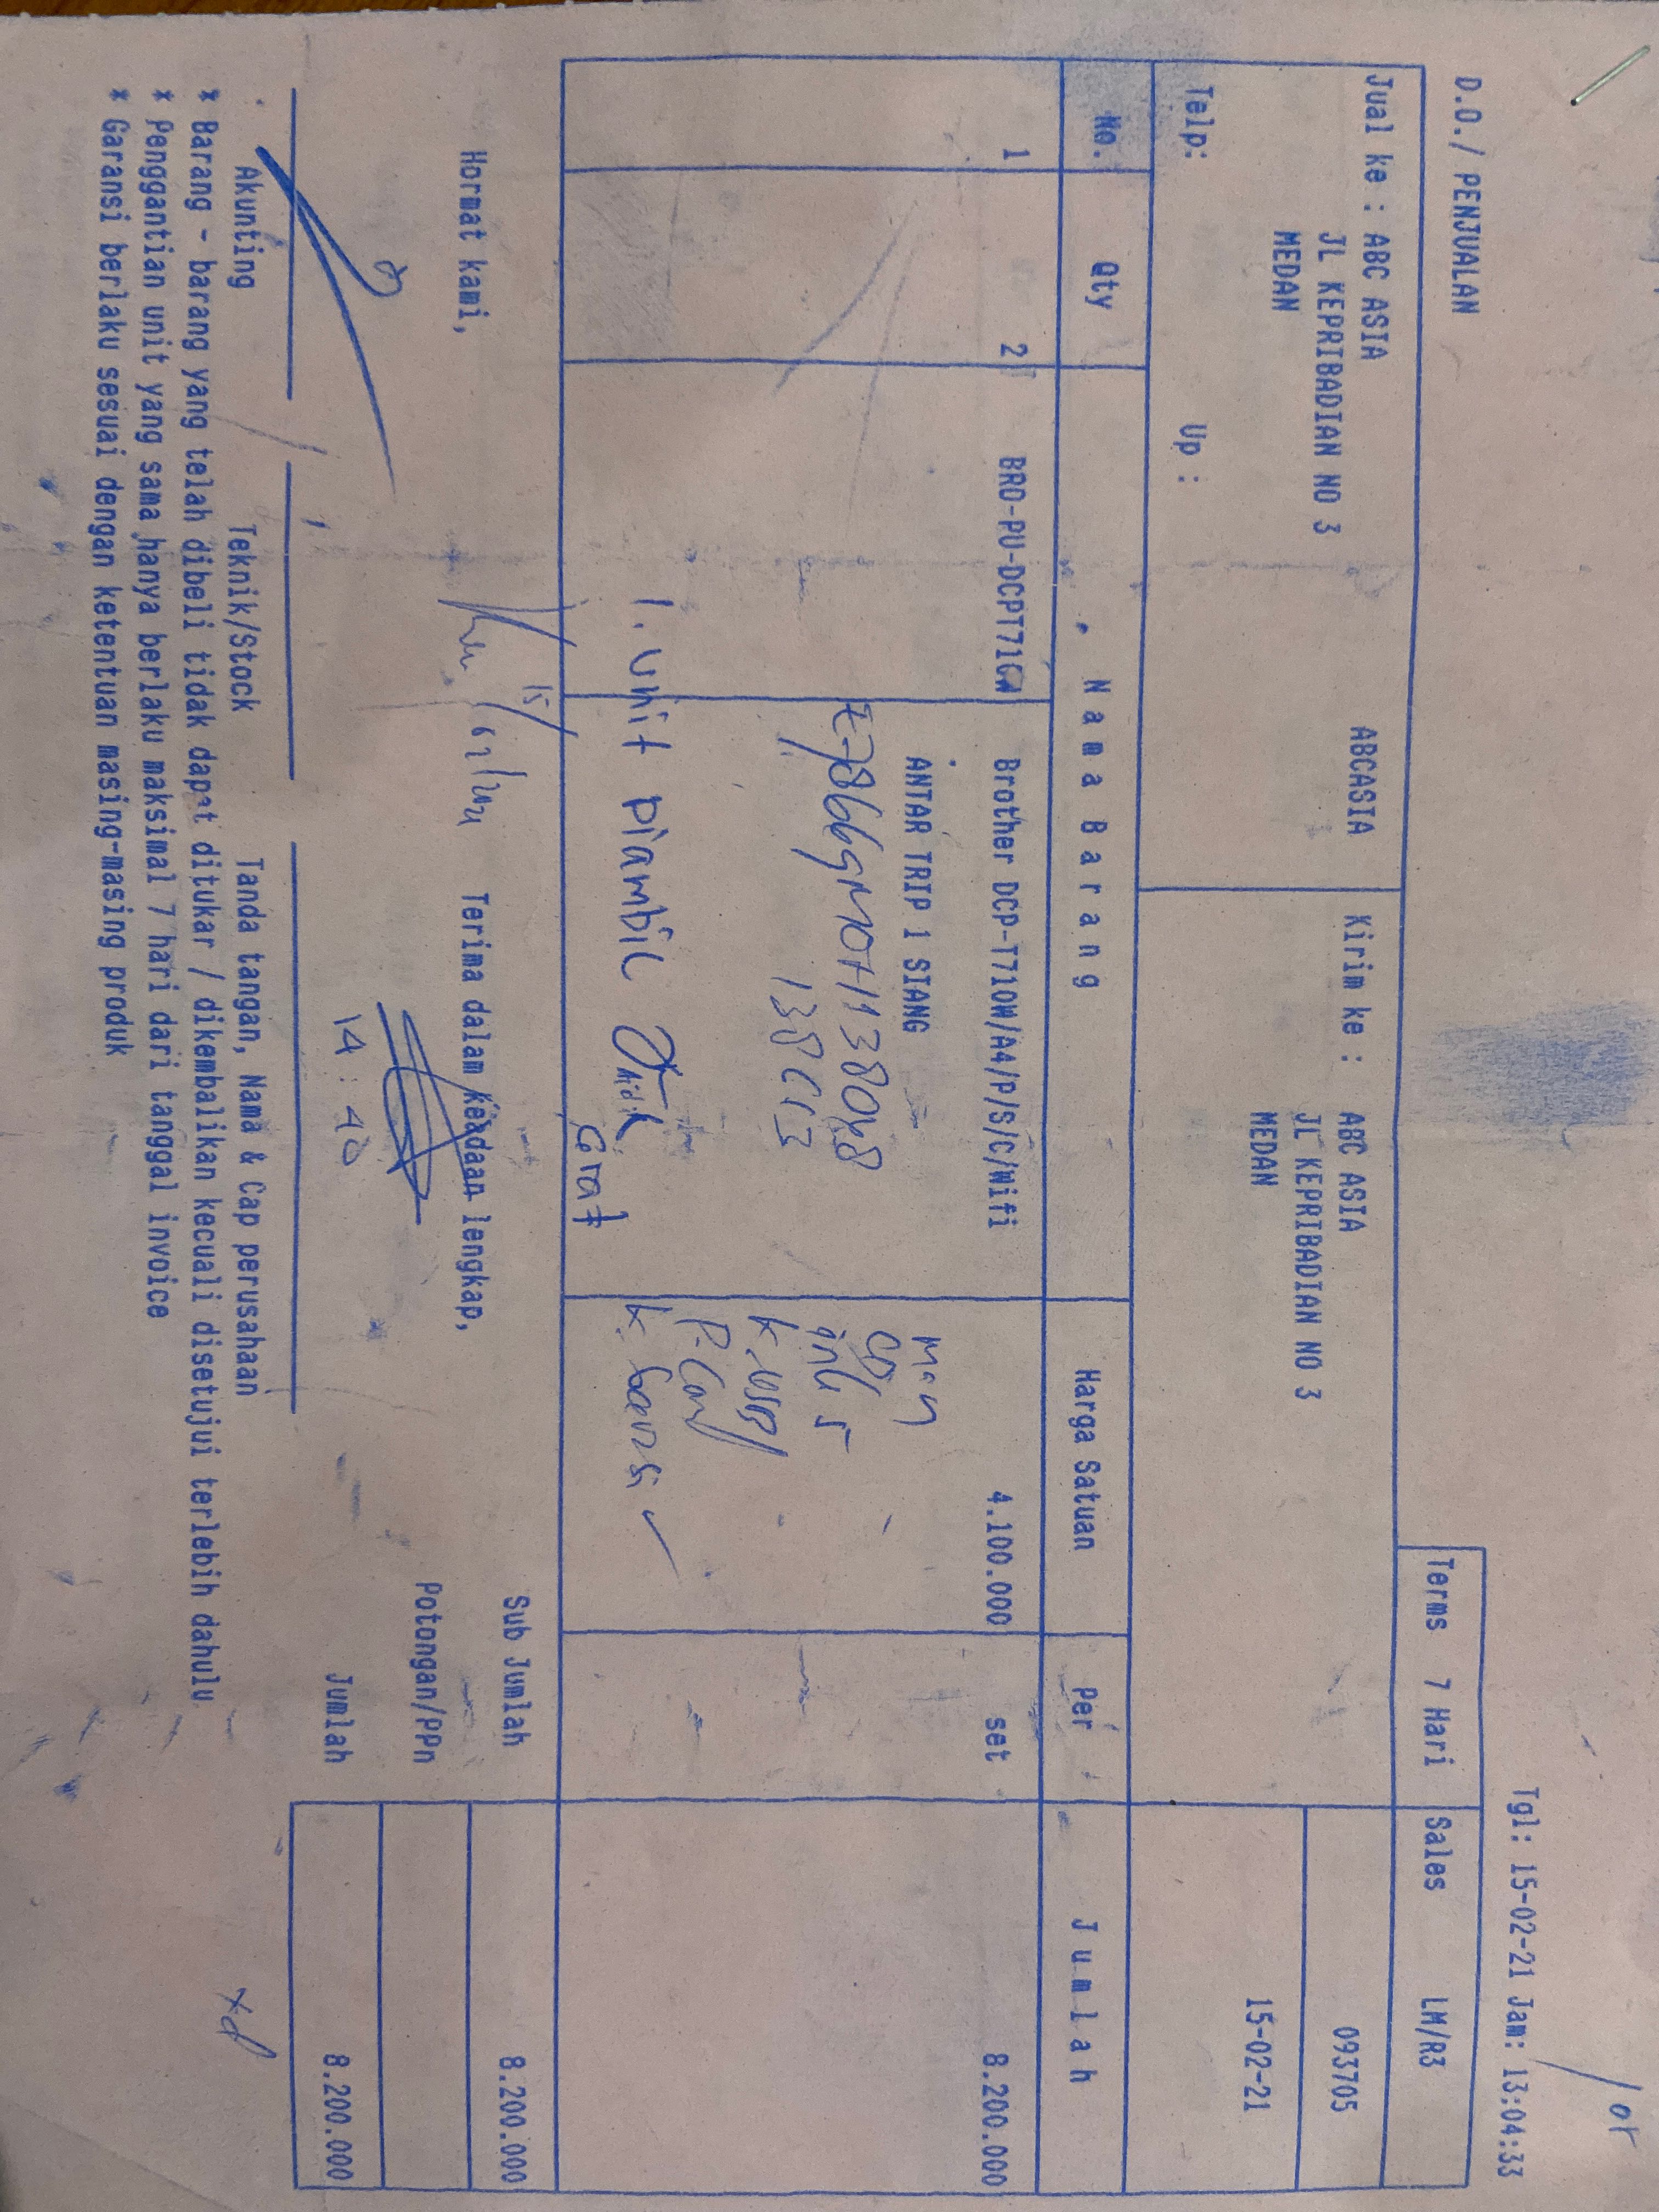 Tgl: 15-02-21 Jam: 13:04:33
D.O./ PENJUALAN
Terms 7 Hari Sales LM/R3
Jual ke : ABC ASIA ABCASIA
JL KEPRIBADIAN NO 3
MEDAN
Telp: Up :
Kirim ke : ABC ASIA
JL KEPRIBADIAN NO 3
MEDAN
093705
15-02-21
No. Qty Nama Barang Harga Satuan Per Jumlah
1 2 BRO-PU-DCPT710W Brother DCP-T710W/A4/P/S/C/Wifi 4.100.000 set 8.200.000
ANTAR TRIP 1 SIANG
1. Unit diambil
k. Garansi
Hormat kami, Terima dalam keadaan lengkap,
14:40
Sub Jumlah 8.200.000
Potongan/PPn
Jumlah 8.200.000
Akunting Teknik/Stock Tanda tangan, Nama & Cap perusahaan
* Barang - barang yang telah dibeli tidak dapat ditukar / dikembalikan kecuali disetujui terlebih dahulu
* Penggantian unit yang sama hanya berlaku maksimal 7 hari dari tanggal invoice
* Garansi berlaku sesuai dengan ketentuan masing-masing produk